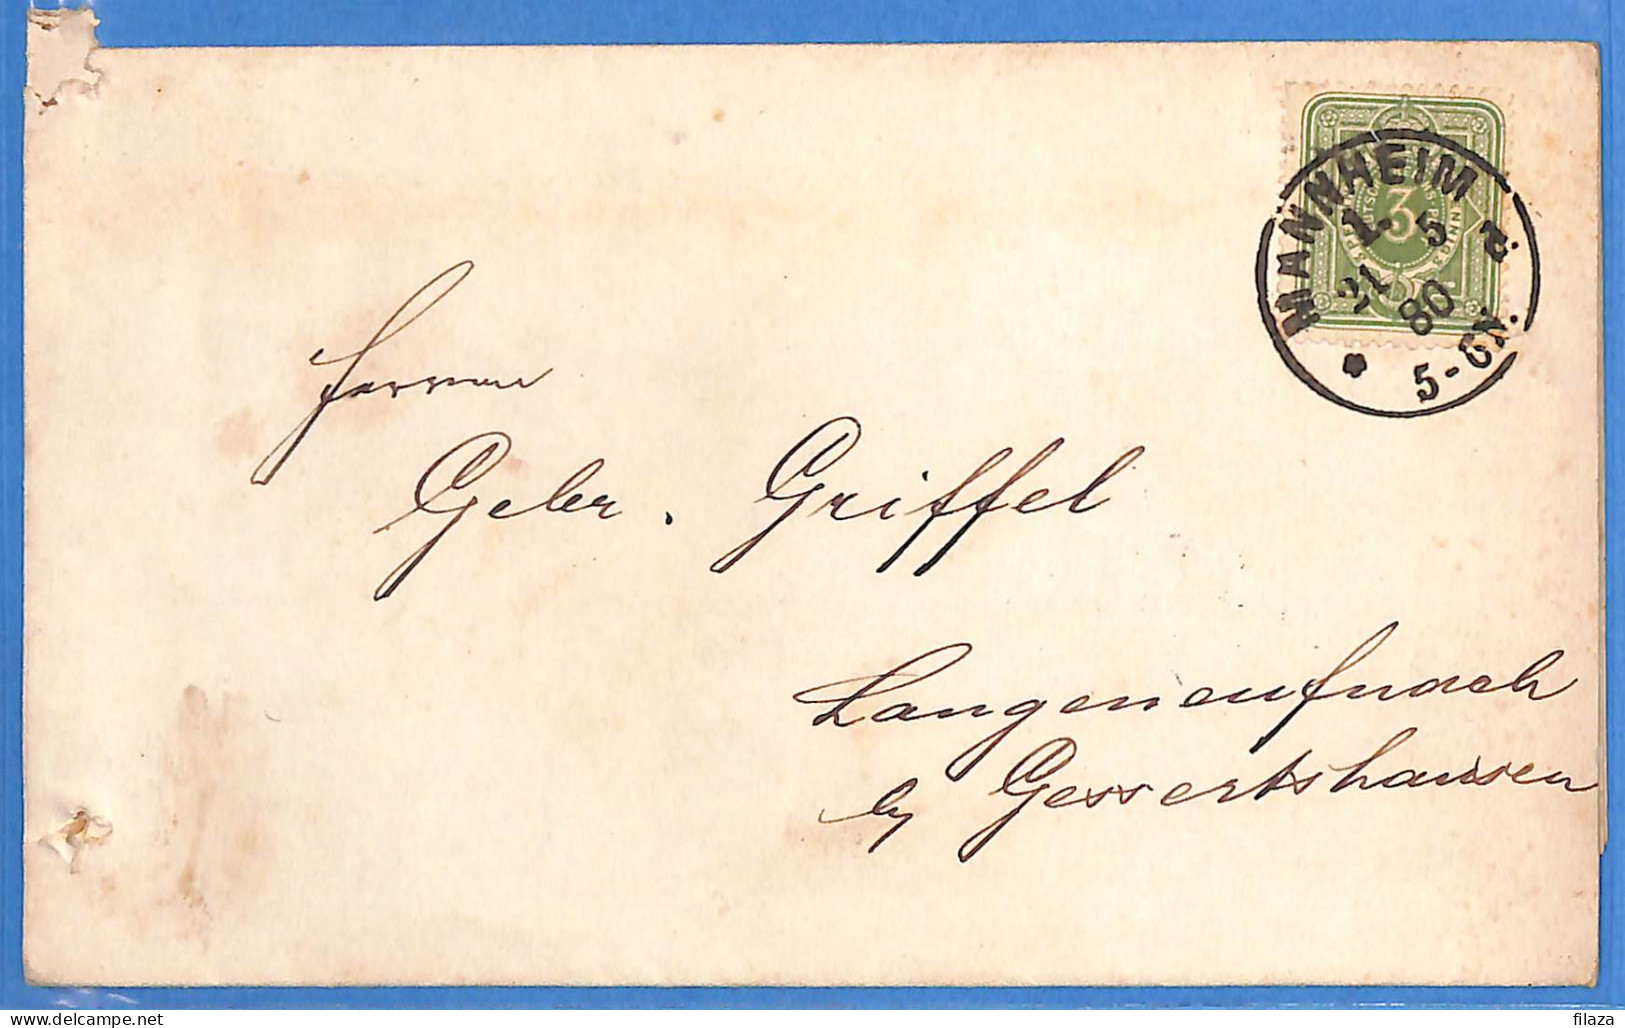 MANNHEIM
3
21 5
80
5-6N.
Herren
Gebr. Griffel
Langenneufnach
by Gessertshausen
delcampe.net
filaza